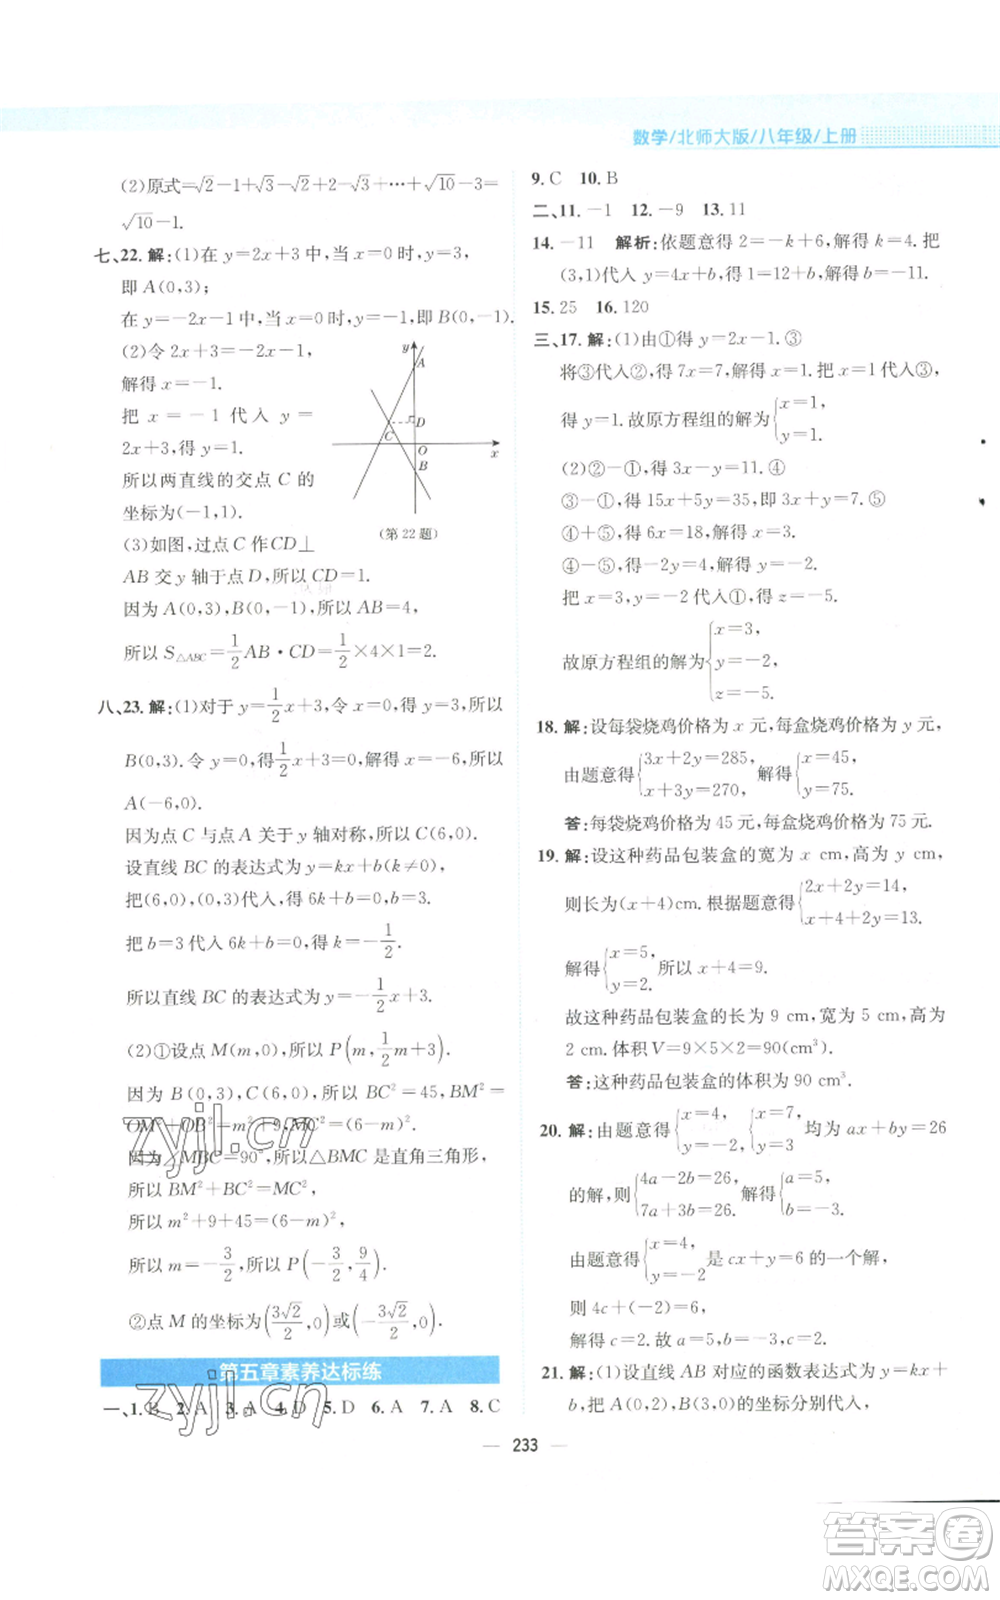 数学/北师大版/八年级/上册
(2)原式=√2-1+√3-√2+√4-√3+…+√10-√9=
√10-1.
七、22.解:(1)在 y=2x+3 中,当 x=0 时,y=3,
即 A(0,3);
在 y=-2x-1 中,当 x=0 时,y=-1,即 B(0,-1).
(2)令 2x+3=-2x-1,
解得 x=-1.
把 x=-1 代入 y=
2x+3,得 y=1.
所以两直线的交点 C 的
坐标为(-1,1).
y
A
D
C
O
x
B
(第22题)
(3)如图,过点 C 作 CD⊥
AB 交 y 轴于点 D,所以 CD=1.
因为 A(0,3),B(0,-1),所以 AB=4,
所以 S△ABC=1/2AB·CD=1/2×4×1=2.
八、23.解:(1)对于 y=1/2x+3,令 x=0,得 y=3,所以
B(0,3).令 y=0,得1/2x+3=0,解得 x=-6,所以
A(-6,0).
因为点 C 与点 A 关于 y 轴对称,所以 C(6,0).
设直线 BC 的表达式为 y=kx+b(k≠0),
把(6,0),(0,3)代入,得 6k+b=0,b=3.
把 b=3 代入 6k+b=0,得 k=-1/2.
所以直线 BC 的表达式为 y=-1/2x+3.
(2)①设点 M(m,0),所以 P(m,1/2m+3).
因为 B(0,3),C(6,0),所以 BC²=45,BM²=
OM²+OB²=m²+9,MC²=(6-m)².
因为∠MBC=90°,所以△BMC 是直角三角形,
所以 BM²+BC²=MC²,
所以 m²+9+45=(6-m)²,
所以 m=-3/2,所以 P(-3/2,9/4).
②点 M 的坐标为(3√2/2,0)或(-3√2/2,0).
第五章素养达标练
一、1.B 2.A 3.A 4.D 5.D 6.A 7.A 8.C
9.C 10.B
二、11.-1 12.-9 13.11
14.-11 解析:依题意得 2=-k+6,解得 k=4.把
(3,1)代入 y=4x+b,得 1=12+b,解得 b=-11.
15.25 16.120
三、17.解:(1)由①得 y=2x-1.③
将③代入②,得 7x=7,解得 x=1.把 x=1 代入③,
得 y=1.故原方程组的解为{x=1,
y=1.
(2)②-①,得 x-4y=11.④
③-①,得 15x+5y=35,即 3x+y=7.⑤
④+⑤,得 4x-3y=18.⑥
④-⑤,得 -2x-5y=4.
把 x=3,y=-2 代入①,得 z=-5.
故原方程组的解为{x=3,
y=-2,
z=-5.
18.解:设每袋烧鸡价格为 x 元,每盒烧鸡价格为 y 元,
由题意得{3x+2y=285,
x+3y=270,
解得{x=45,
y=75.
答:每袋烧鸡价格为 45 元,每盒烧鸡价格为 75 元.
19.解:设这种药品包装盒的宽为 x cm,高为 y cm,
则长为(x+4)cm.根据题意得{2x+2y=14,
x+4+2y=13.
解得{x=5,
y=2.
所以 x+4=9.
故这种药品包装盒的长为 9 cm,宽为 5 cm,高为
2 cm.体积 V=9×5×2=90(cm³).
答:这种药品包装盒的体积为 90 cm³.
20.解:由题意得{x=4,
y=-2,
{x=7,
y=3
均为 ax+by=26
的解,则{4a-2b=26,
7a+3b=26,
解得{a=5,
b=-3.
由题意得{x=4,
y=-2
是 cx+y=6 的一个解,
则 4c+(-2)=6,
解得 c=2.故 a=5,b=-3,c=2.
21.解:(1)设直线 AB 对应的函数表达式为 y=kx+
b,把 A(0,2),B(3,0)的坐标分别代入,
233
zyjl.cn
zyjl.cn
答案圈
MXQE.COM